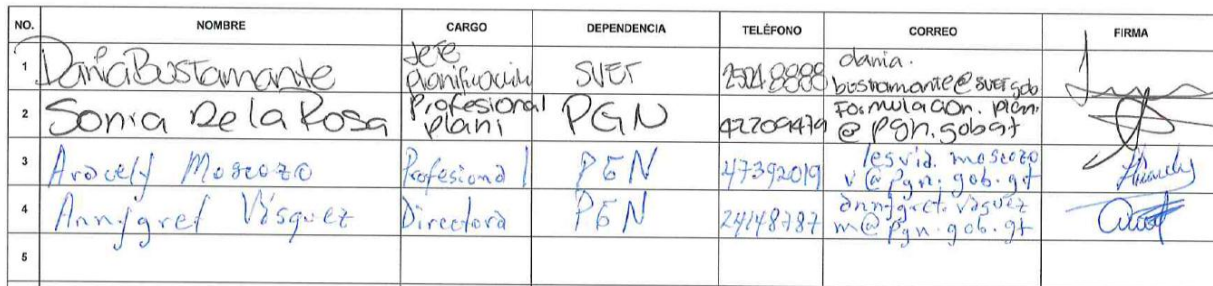 NO. NOMBRE CARGO DEPENDENCIA TELÉFONO CORREO FIRMA
1 Dania Bustamante Jefe planificación SVET 25048888 dania.bustamante@svet.gob
2 Sonia De la Rosa Profesional plani PGN 42209479 formulacion.plani@pgn.gob.gt
3 Aracely Moscozo Profesional PGN 47392019 lesvia.moscozov@pgn.gob.gt
4 Annygret Vásquez Directora PGN 24148787 annygret.vasquezm@pgn.gob.gt
5